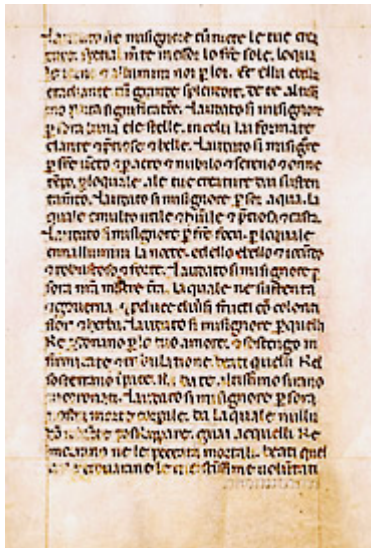 Laudato sie misignore cū tucte le tue crea
ture spetialmēte messor lo frē sole. loqua
le iorno ⁊ allumini noi p loi. Et ellu
radiante cū grande splendore. de te altissi
mo porta significatiōe. Laudato si misignore
p sora luna ele stelle. in celu lai formate
clarite ⁊ ptiose ⁊ belle. Laudato si misignōe
p frē uēto ⁊ p aere ⁊ nubilo ⁊ sereno ⁊ onne
tēpo. p loquale. ale tue creature dai susten
tamēto. Laudato si misignore p sor aqua. la
quale emulto utile ⁊ hūile ⁊ ptiosa ⁊ casta.
Laudato si misignore p frē focu. p loquale
ennallumini la nocte. edello ebello ⁊ iocūdo
⁊ robustoso ⁊ forte. Laudato si misignore p
sora nrā matre trā. la quale ne sustenta
⁊ gouerna. ⁊ pduce diūsi fructi cō coloriti
flori ⁊ herba. Laudato si misignore p quelli
ke pdonano p lo tuo amore. ⁊ sostengo in
firmitate ⁊ tribulatione. beati quelli kel
sosterrano ī pace. ka da te altissimo sirano
incoronati. Laudato si misignore p sora
nrā morte corpale. da la quale nullu
hō uiuēte poskappare. guai acquelli ke
morrano ne le peccata mortali. beati quel
li ke trouarane le tue sctissime uoluntati